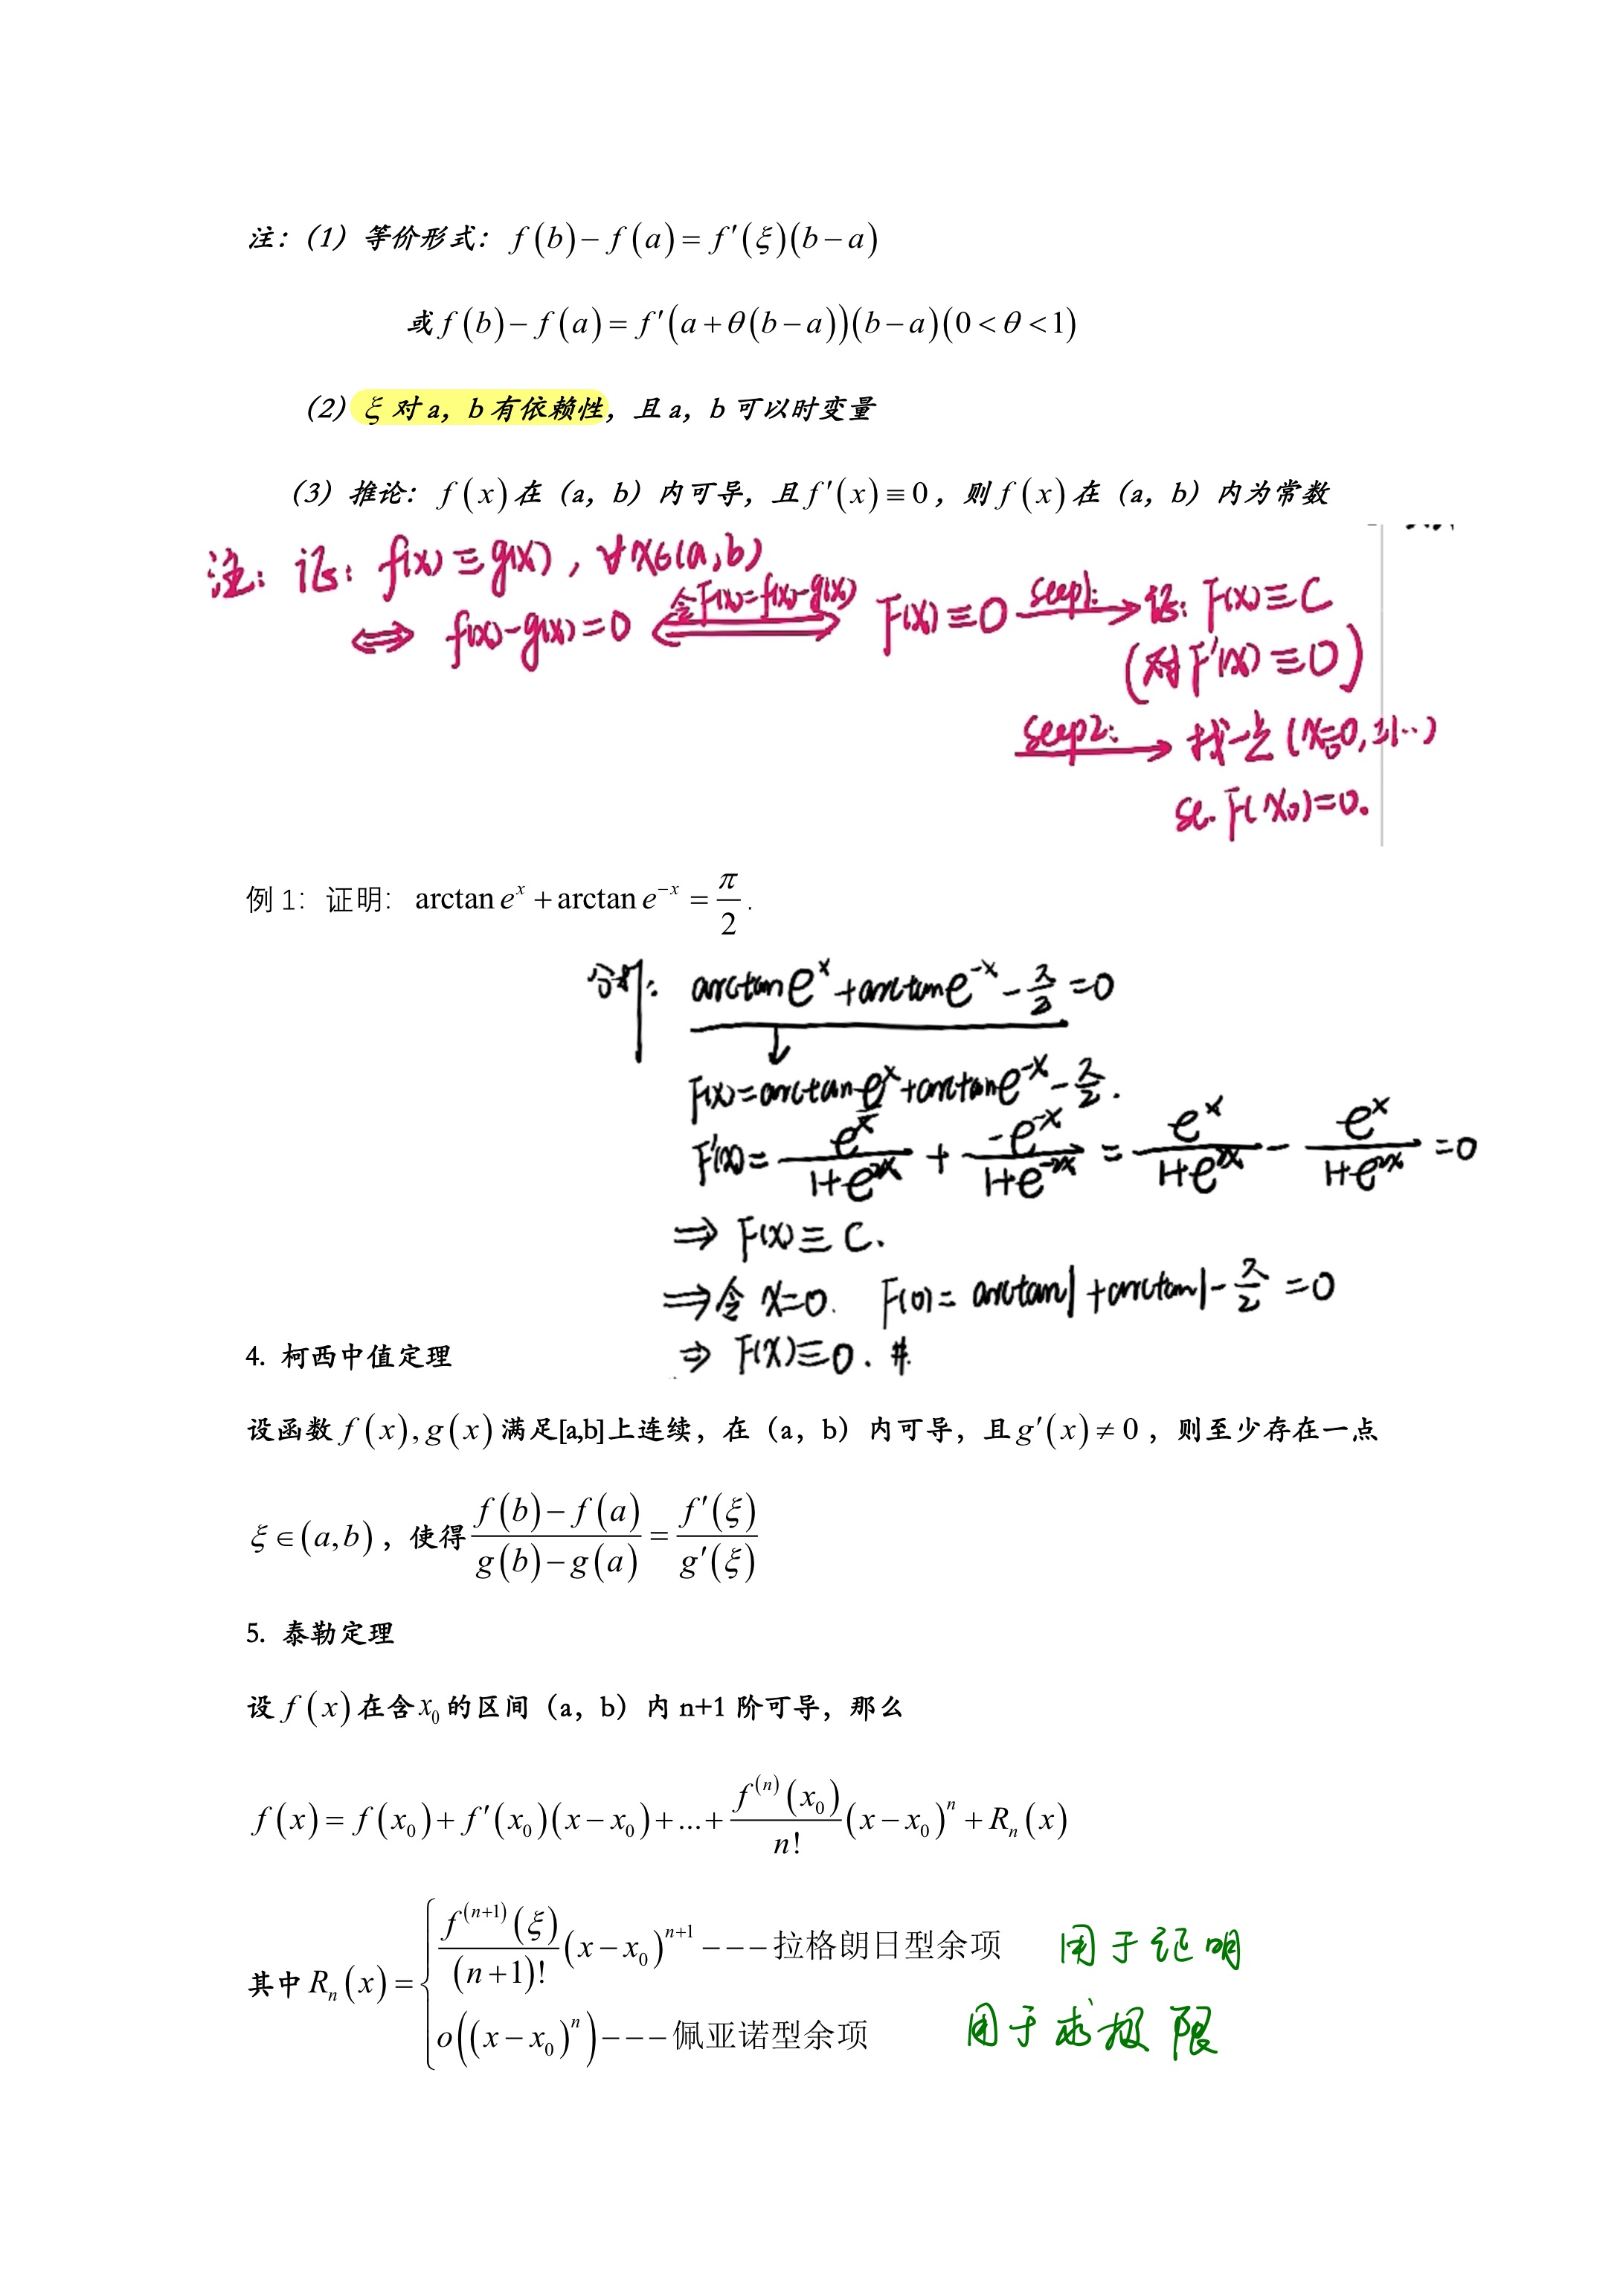 注：（1）等价形式： f(b)－f(a)＝f′(ξ)(b－a)
或 f(b)－f(a)＝f′(a＋θ(b－a))(b－a)(0＜θ＜1)
（2）ξ 对 a，b 有依赖性，且 a，b 可以时变量
（3）推论：f(x) 在（a，b）内可导，且 f′(x)≡0，则 f(x) 在（a，b）内为常数
注：证：f(x)≡g(x)，∀x∈(a,b)
⇔ f(x)-g(x)=0 ⇔(令F(x)=f(x)-g(x)) F(x)≡0 seep1:→ 证：F(x)≡C
(对F′(x)≡0)
seep2:→ 找一点(x₀=0,±1…)
s.t. F(x₀)=0.
例 1： 证明： arctan eˣ + arctan e⁻ˣ = π/2 .
分析： arctan eˣ + arctan e⁻ˣ - π/2 = 0
↓
F(x)=arctan eˣ + arctan e⁻ˣ - π/2 .
F′(x)= eˣ/(1+e²ˣ) + -e⁻ˣ/(1+e⁻²ˣ) = eˣ/(1+e²ˣ) - eˣ/(1+e²ˣ) =0
⇒ F(x)≡C.
⇒令 x=0. F(0)= arctan1+arctan1- π/2 =0
⇒ F(x)≡0. #.
4. 柯西中值定理
设函数 f(x), g(x) 满足[a,b]上连续，在（a，b）内可导，且 g′(x)≠0 ，则至少存在一点
ξ∈(a,b)，使得 (f(b)－f(a))/(g(b)－g(a)) = f′(ξ)/g′(ξ)
5. 泰勒定理
设 f(x) 在含 x₀ 的区间（a，b）内 n+1 阶可导，那么
f(x)= f(x₀)+ f′(x₀)(x－x₀)+...+ f⁽ⁿ⁾(x₀)/n! (x－x₀)ⁿ + Rₙ(x)
其中 Rₙ(x)= { f⁽ⁿ⁺¹⁾(ξ)/(n+1)! (x－x₀)ⁿ⁺¹ －－－拉格朗日型余项 用于证明
o((x－x₀)ⁿ)－－－佩亚诺型余项 用于求极限